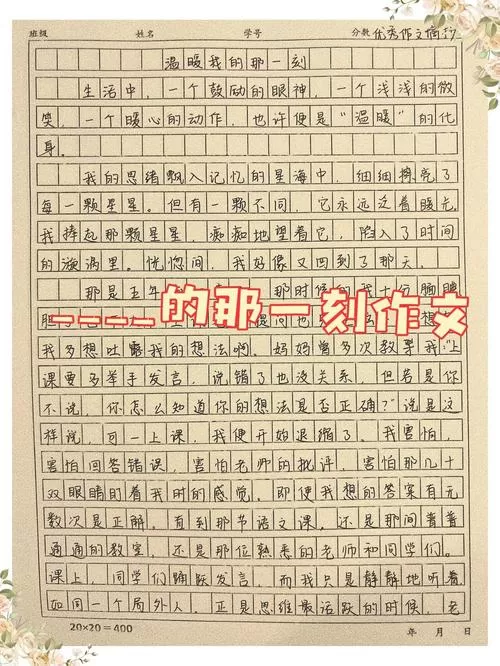 班级 姓名 学号 分数 优秀作文摘抄
温暖我的那一刻
生活中，一个鼓励的眼神，一个浅浅的微
笑，一个暖心的动作，也许便是“温暖”的化
身。
我的思绪飘入记忆的星海中，细细擦亮了
每一颗星星。但有一颗不同，它永远泛着暖光
我捧起那颗星星，痴痴地望着它，陷入了时间
的漩涡里。恍惚间，我好像又回到了那天。
那是五年
____的那一刻作文
我多想吐露我的想法啊。妈妈曾多次教导我：“上
课要多举手发言，说错了也没关系，但若是你
不说，你怎么知道你的想法是否正确？”说是这
样说，可一上课，我便开始退缩了。我害怕，
害怕回答错误，害怕老师的批评，害怕那几十
双眼睛盯着我时的感觉。即便我想的答案有无
数次是正解。直到那节语文课。还是那间普普
通通的教室，还是那位熟悉的老师和同学们。
课上，同学们踊跃发言，而我只是静静地听着
如同一个局外人，正是思维最活跃的时候，老
20×20=400 年 月 日